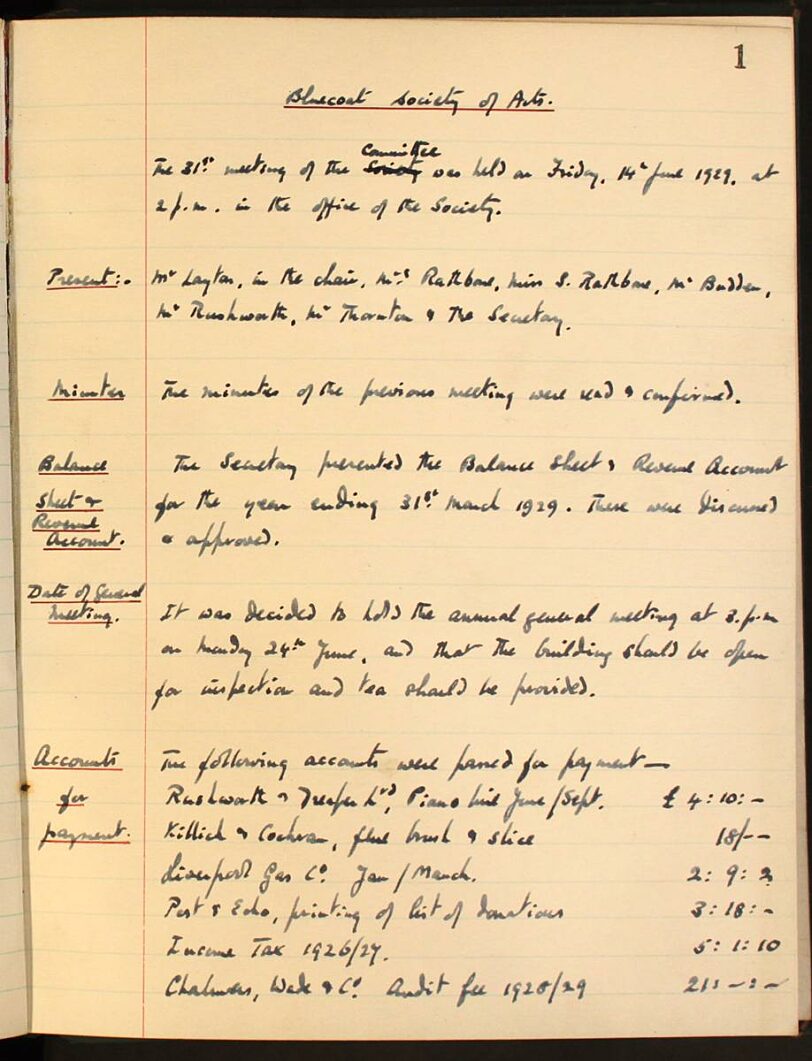 1
Bluecoat Society of Arts.
Committee
The 31st meeting of the Society was held on Friday, 14th June 1929, at
2 p.m. in the office of the Society.
Present:- Mr Layton, in the chair, Mrs Rathbone, Miss S. Rathbone, Mr Budden,
Mr Rushworth, Mr Thornton & The Secretary.
Minutes The minutes of the previous meeting were read & confirmed.
Balance The Secretary presented the Balance Sheet & Revenue Account
Sheet & for the year ending 31st March 1929. These were discussed
Revenue
Account. & approved.
Date of General
Meeting. It was decided to hold the annual general meeting at 3. p.m
on Monday 24th June, and that the building should be open
for inspection and tea should be provided.
Accounts The following accounts were passed for payment—
for Rushworth & Dreaper Ltd, Piano hire June/Sept. £ 4:10:-
payment: Killick & Cochran, flue brush & slice 18/--
Liverpool Gas Co. Jan/March. 2: 9: 2
Post & Echo, printing of list of donations 3:18:-
Income Tax 1926/27. 5:1:10
Chalmers, Wade & Co. Audit fee 1928/29 21:-:-